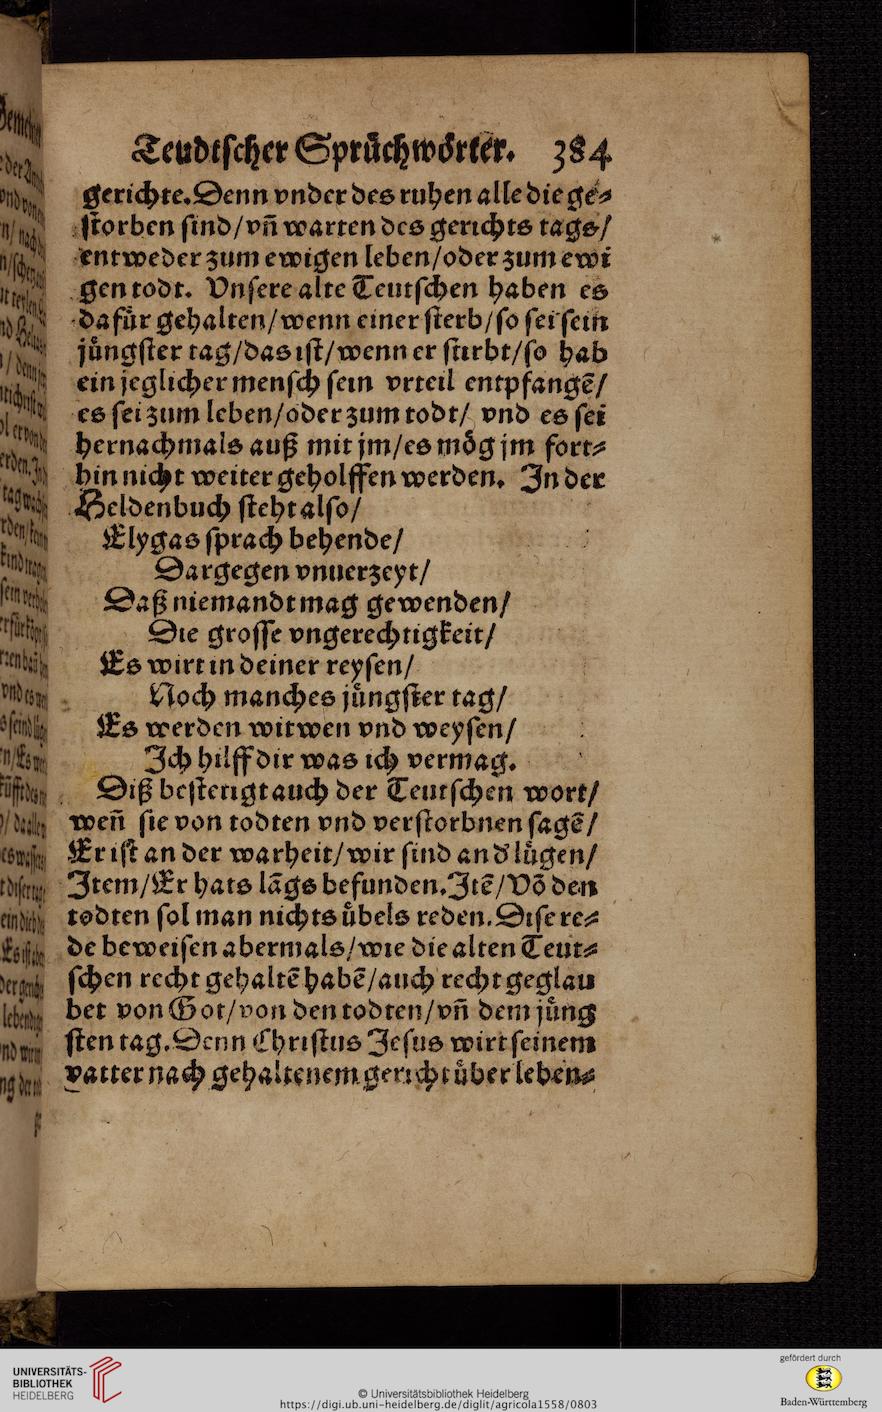 Teudtſcher Spruͤchwoͤrter. 384
gerichte. Denn vnder des ruhen alle die ge⸗
ſtorben ſind/vñ warten des gerichts tags/
entweder zum ewigen leben/oder zum ewi
gen todt. Vnſere alte Teutſchen haben es
dafuͤr gehalten/wenn einer ſterb/ſo ſei ſein
juͤngſter tag/das iſt/wenn er ſtirbt/ſo hab
ein jeglicher menſch ſein vrteil entpfangẽ/
es ſei zum leben/oder zum todt/ vnd es ſei
hernachmals auß mit jm/es moͤg jm fort⸗
hin nicht weiter geholffen werden. In der
Heldenbuch ſteht alſo/
Elygas ſprach behende/
Dargegen vnuerzeyt/
Daß niemandt mag gewenden/
Die groſſe vngerechtigkeit/
Es wirt in deiner reyſen/
Noch manches juͤngſter tag/
Es werden witwen vnd weyſen/
Ich hilff dir was ich vermag.
Diß beſtetigt auch der Teutſchen wort/
weñ ſie von todten vnd verſtorbnen ſagẽ/
Er iſt an der warheit/wir ſind an d' luͤgen/
Item/Er hats lãgs befunden. Itẽ/Võ den
todten ſol man nichts uͤbels reden. Diſe re⸗
de beweiſen abermals/wie die alten Teut⸗
ſchen recht gehaltẽ habẽ/auch recht geglau
bet von Got/von den todten/vñ dem juͤng
ſten tag. Denn Chriſtus Jeſus wirt ſeinem
vatter nach gehaltenem gericht uͤber leben⸗
UNIVERSITÄTS-
BIBLIOTHEK
HEIDELBERG
© Universitätsbibliothek Heidelberg
https://digi.ub.uni-heidelberg.de/diglit/agricola1558/0803
gefördert durch
Baden-Württemberg